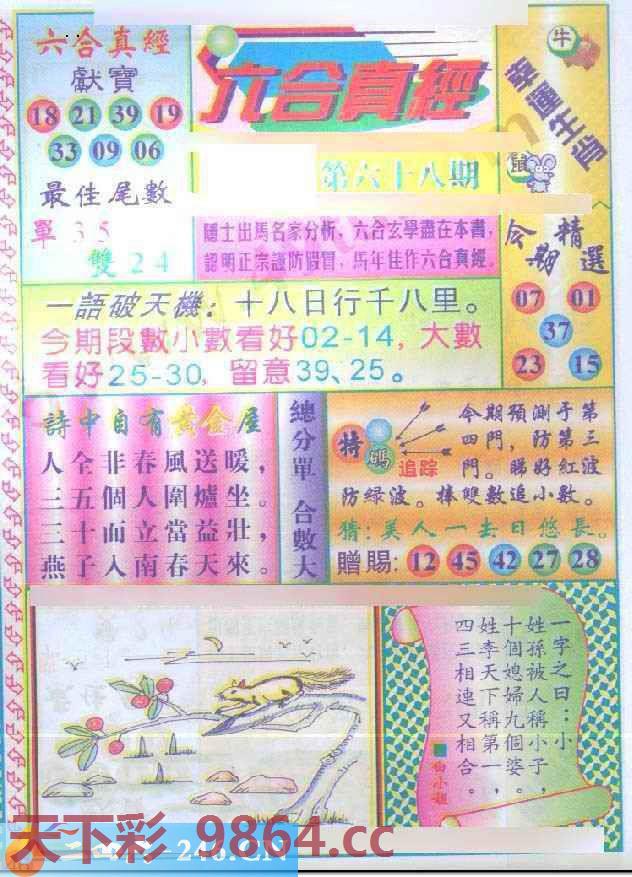 六合真經
獻寶
18 21 39 19
33 09 06
最佳尾數
單 35
雙 24
六合真經
第六十八期
隱士出馬名家分析，六合玄學盡在本書，
認明正宗謹防假冒，馬年佳作六合真經。
牛
幸運生肖
鼠
今期精選
07 01
37
23 15
一語破天機：十八日行千八里。
今期段數小數看好02-14，大數
看好25-30，留意39、25。
詩中自有黃金屋
人全非春風送暖，
三五個人圍爐坐。
三十而立當益壯，
燕子入南春天來。
總分單 合數大
特碼
追踪
今期預測于第
四門，防第三
門。睇好紅波
防绿波。捧雙數追小數。
猜：美人一去日悠長。
贈賜：12 45 42 27 28
一字之曰：小
姓孫被人稱小子，
十個媳婦九個婆。
姓李天下稱第一，
四三相連又相合。
天下彩 9864.cc
246.CN